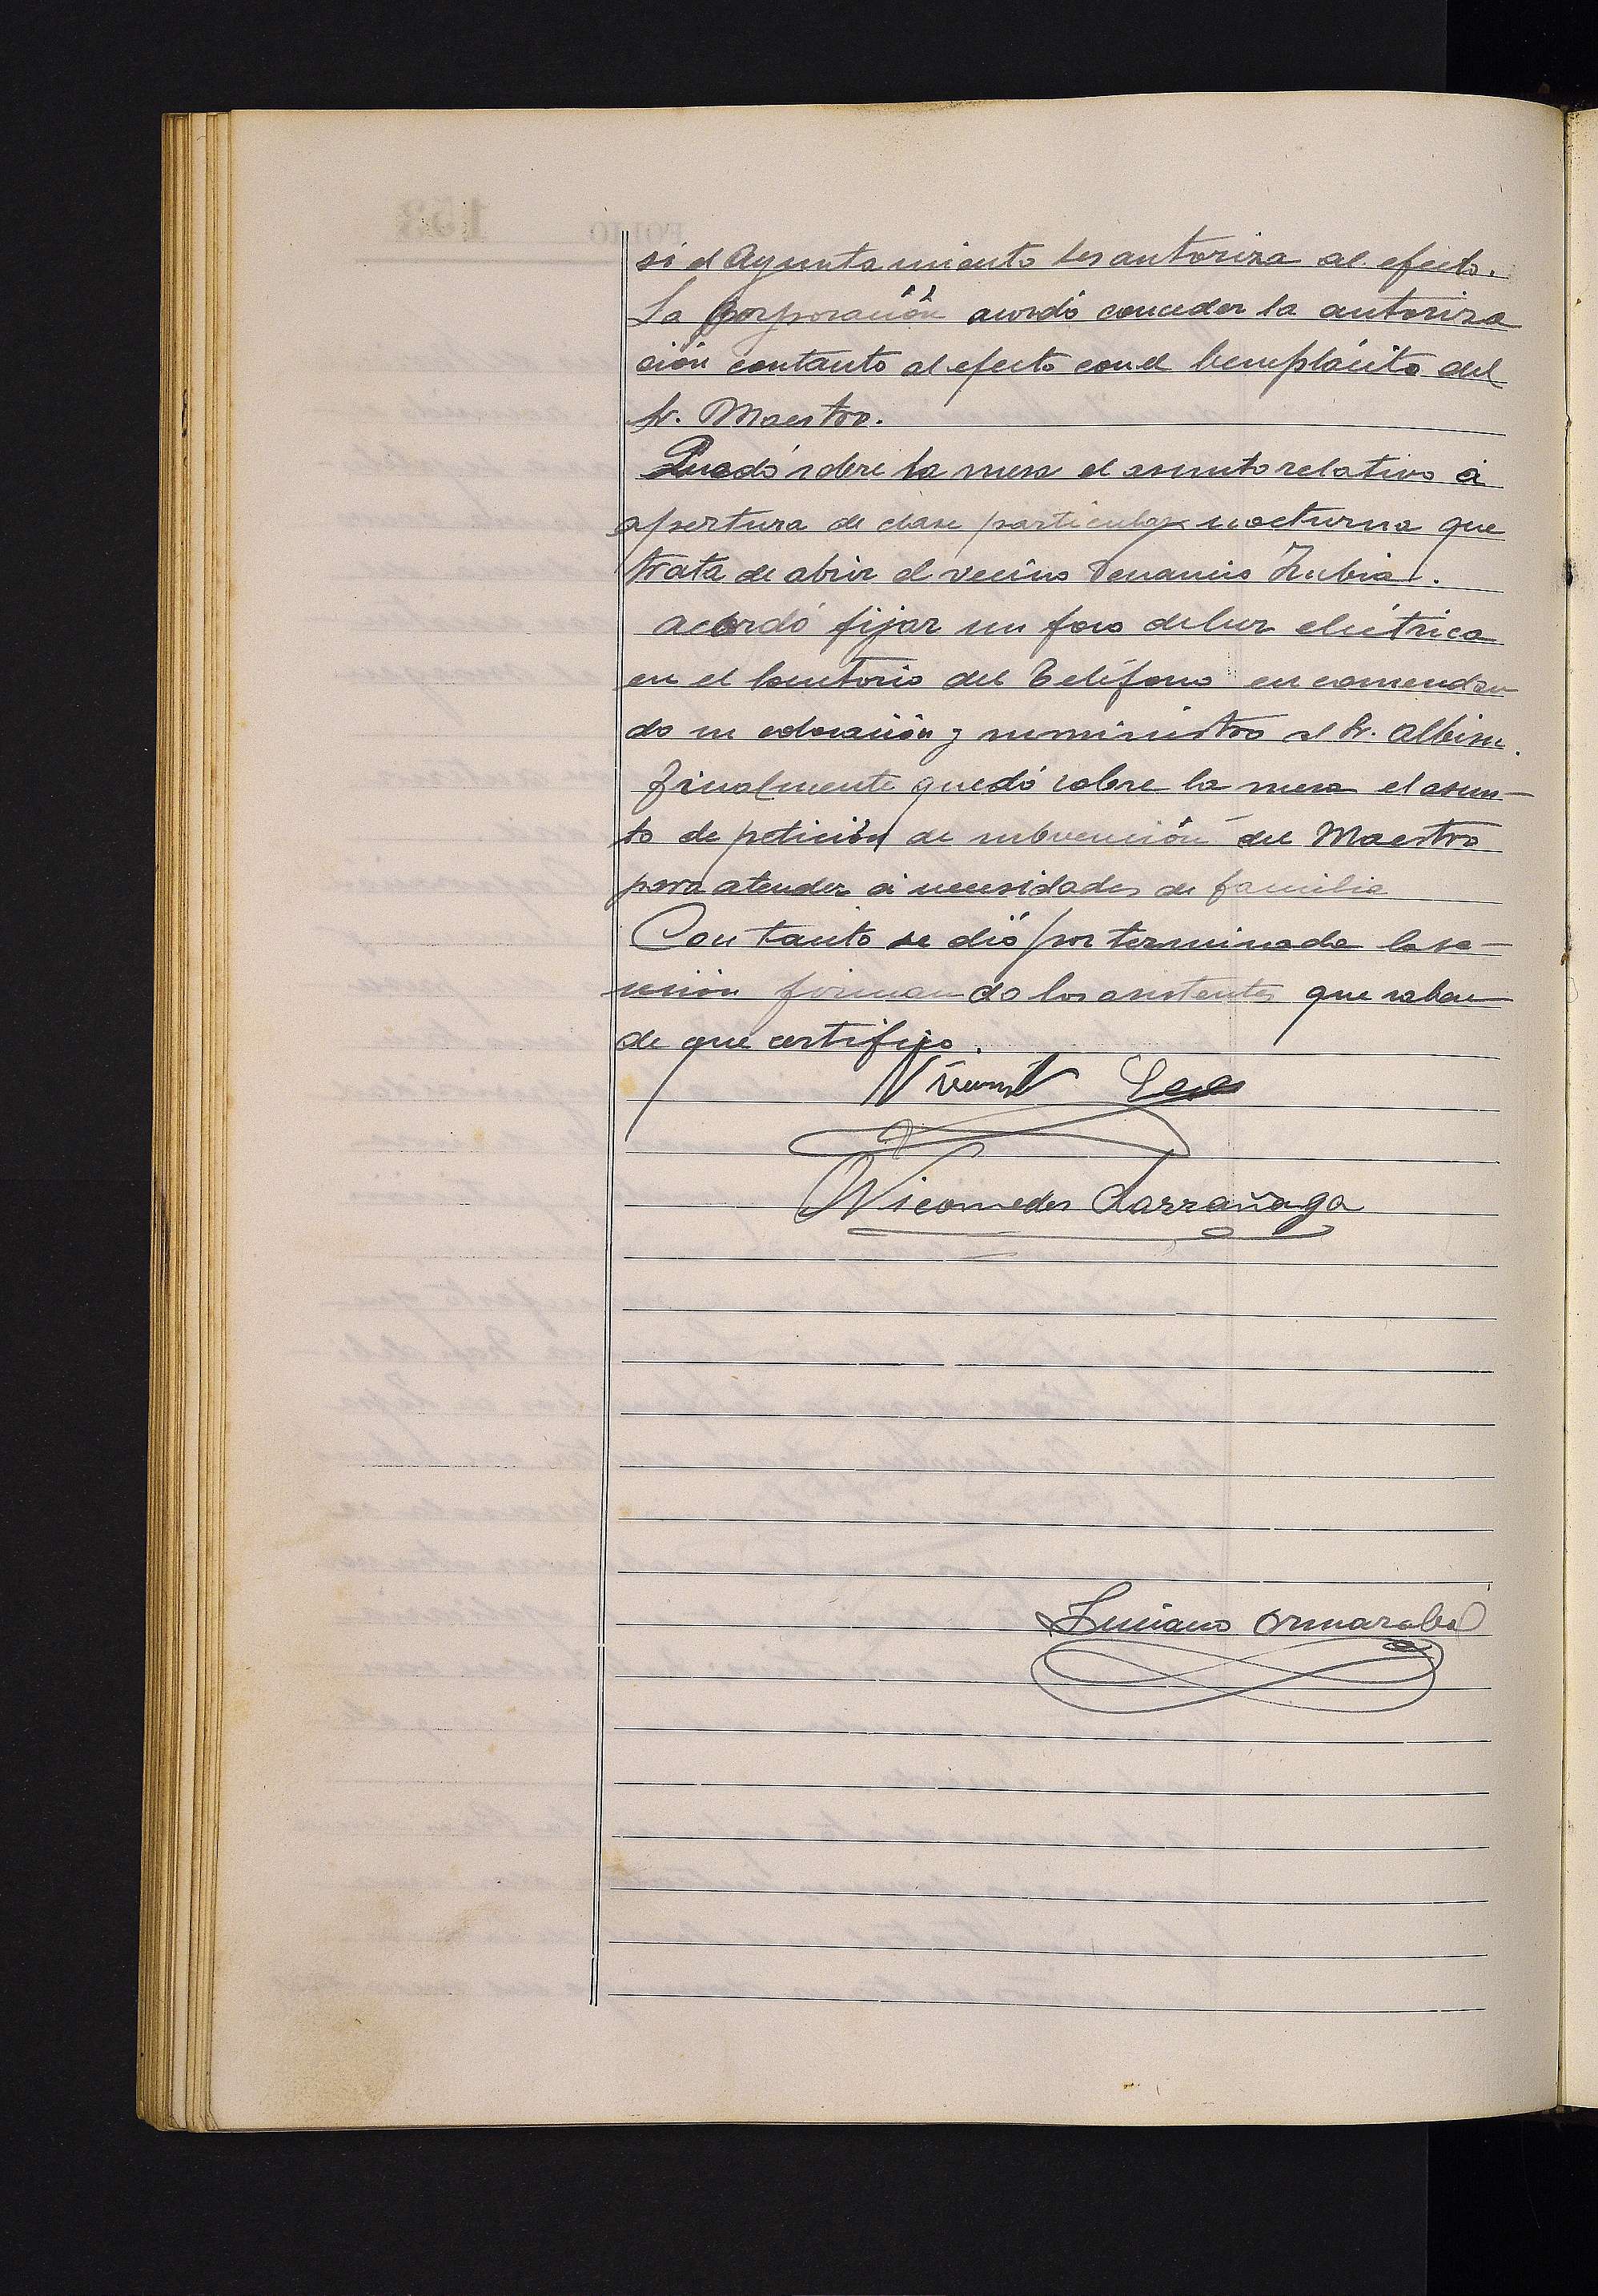 si el Ayuntamiento les autoriza al efecto.
La Corporación acordó conceder la autoriza
ción contanto al efecto con el beneplácito del
Sr. Maestro.
Quedó sobre la mesa el asunto relativo á
apertura de clase particular nocturna que
trata de abrir el vecino Venancio Zubia.
acordó fijar un foco de luz eléctrica
en el locutorio del Teléfono encomendan
do su colocación y suministro al Sr. Albisu.
Finalmente quedó sobre la mesa el asun-
to de petición de subvención del Maestro
para atender á necesidades de familia
Con tanto se dió por terminada la se-
sión firmando los asistentes que saben
de que certifico.
Vicente
Nicomedes Larrañaga
Luciano Ormazabal